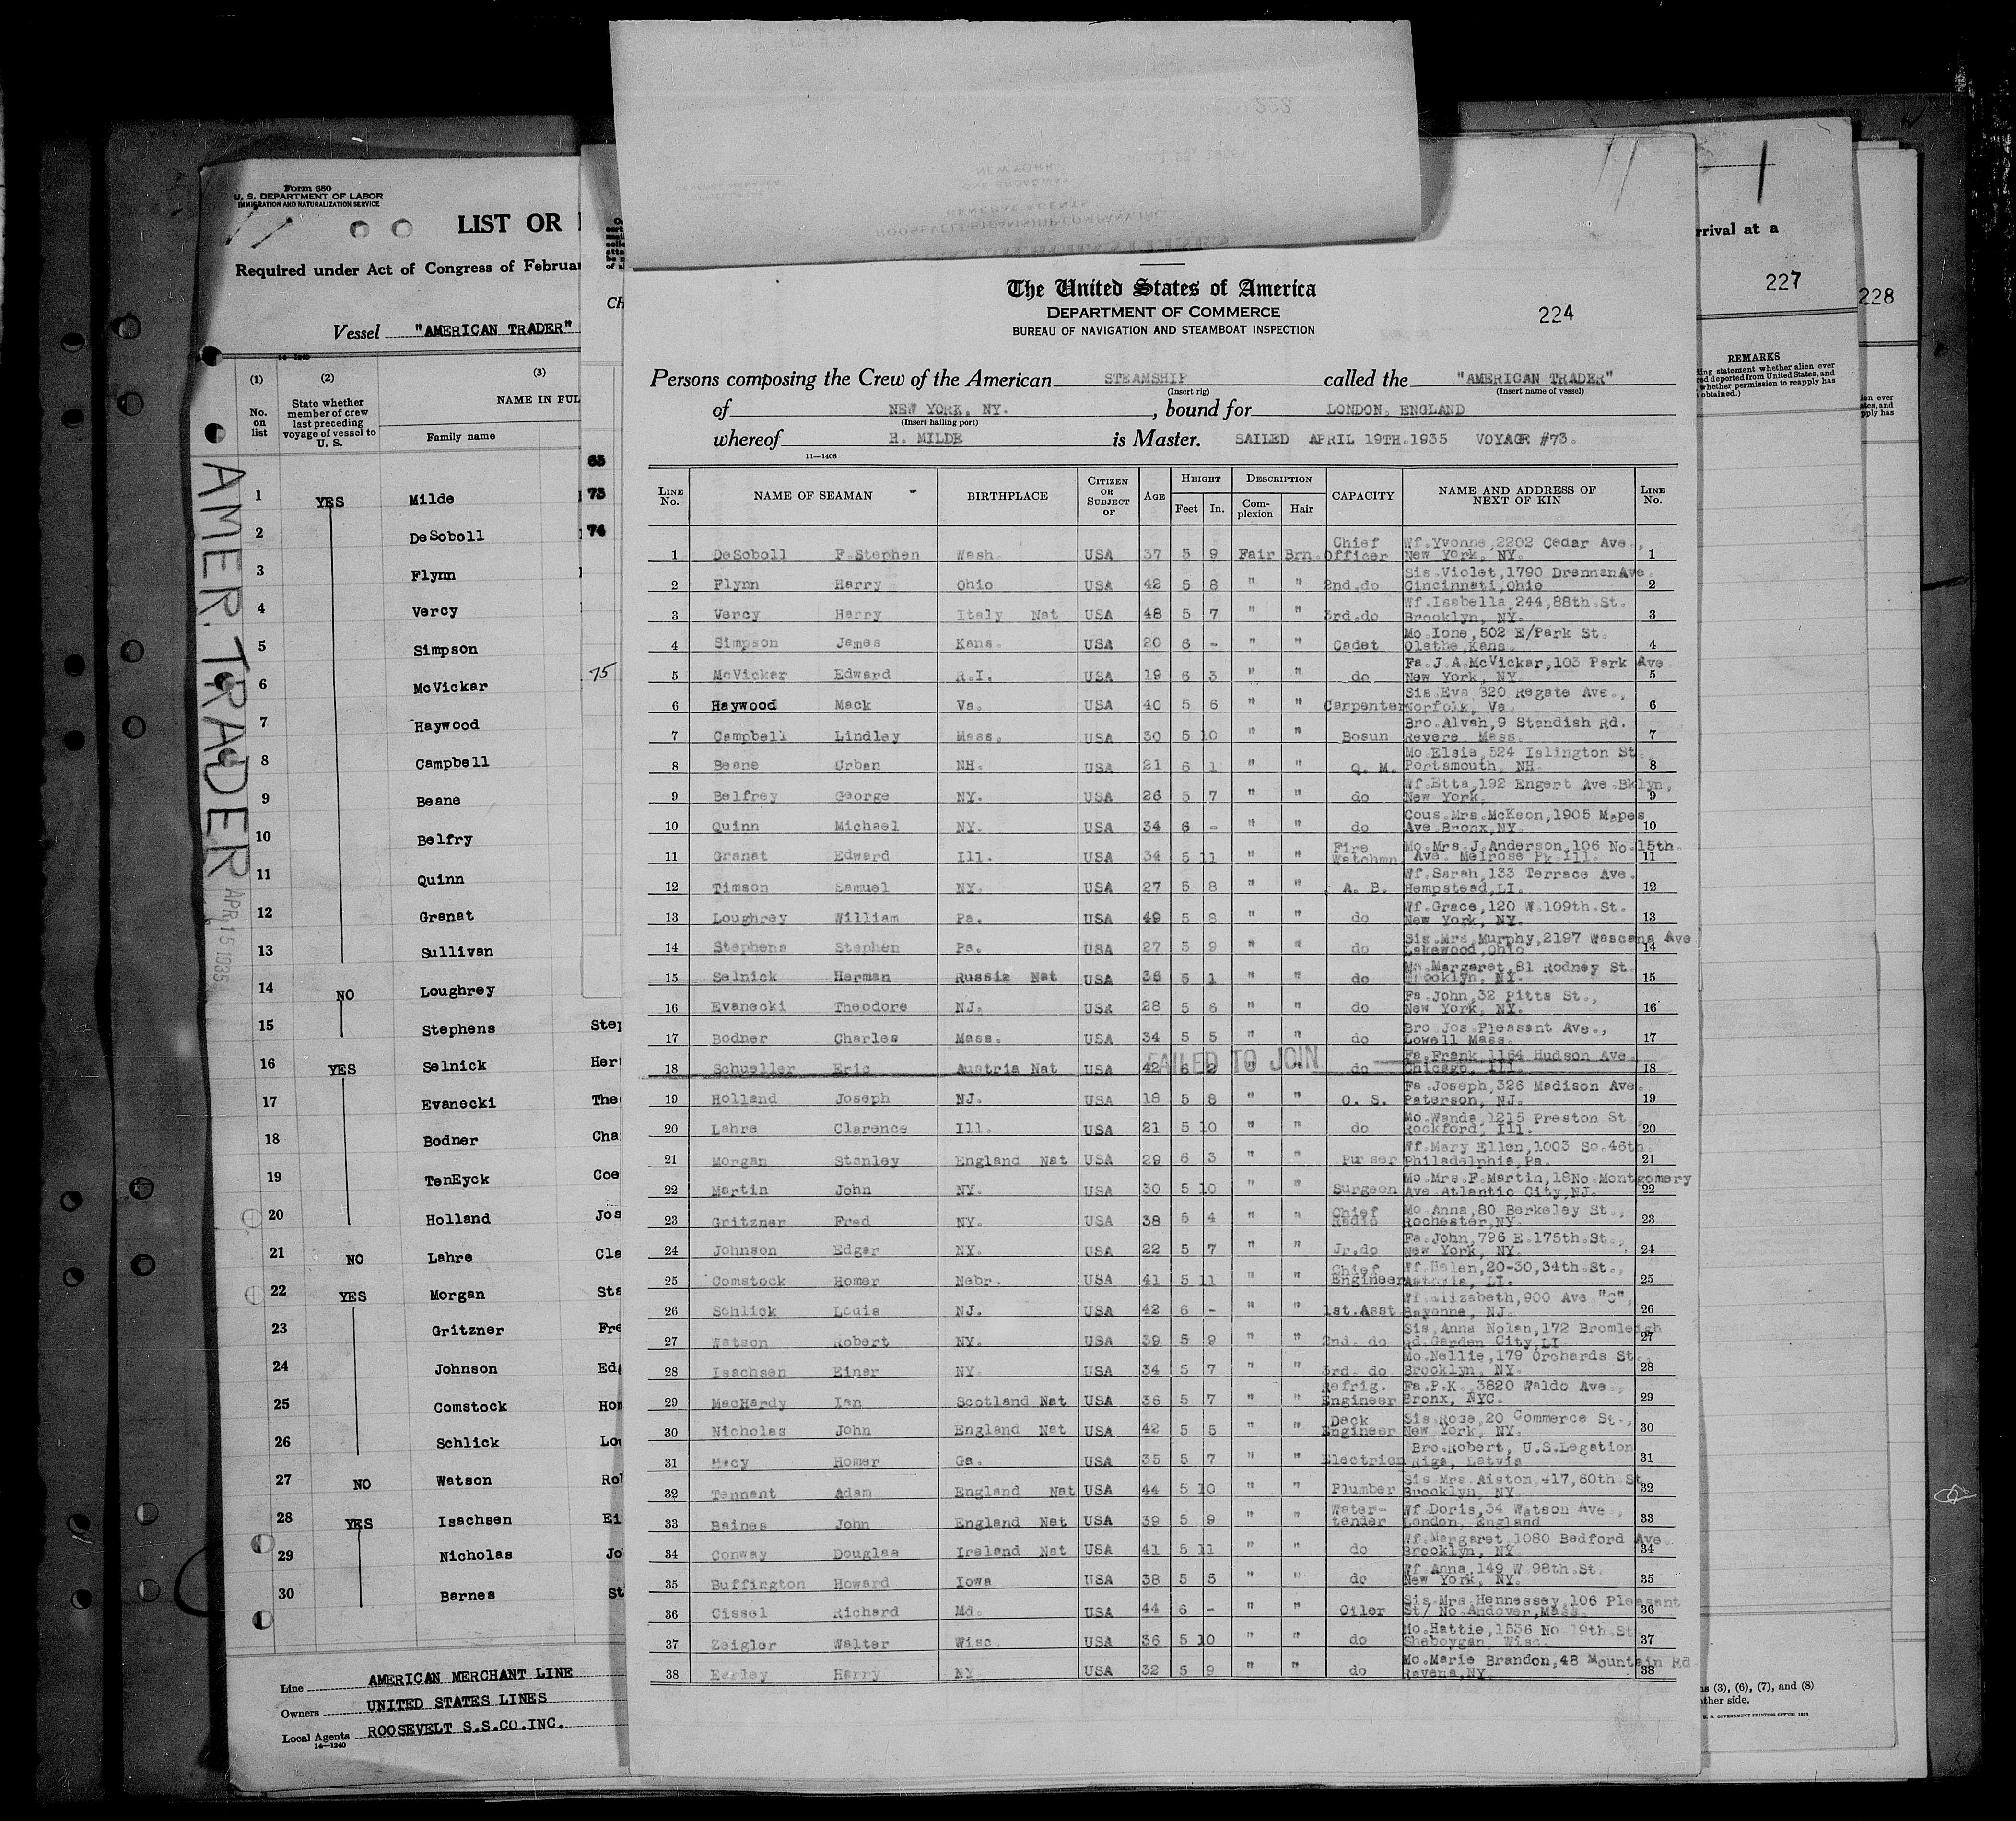 Form 680
U. S. DEPARTMENT OF LABOR
IMMIGRATION AND NATURALIZATION SERVICE
LIST OR
Required under Act of Congress of Februar
Vessel "AMERICAN TRADER"
14—1240
(1) (2) (3)
No. on list
State whether member of crew last preceding voyage of vessel to U. S.
NAME IN FUL
Family name
AMER. TRADER
APR 15 1935
1 YES Milde
2 DeSoboll
3 Flynn
4 Vercy
5 Simpson
6 McVickar
7 Haywood
8 Campbell
9 Beane
10 Belfry
11 Quinn
12 Granat
13 Sullivan
14 NO Loughrey
15 Stephens Step
16 YES Selnick Her
17 Evanecki The
18 Bodner Cha
19 TenEyck Coe
20 Holland Jos
21 NO Lahre Cla
22 YES Morgan Sta
23 Gritzner Fre
24 Johnson Edg
25 Comstock Hom
26 Schlick Lou
27 NO Watson Ro
28 YES Isachsen Ei
29 Nicholas Jo
30 Barnes St
Line AMERICAN MERCHANT LINE
Owners UNITED STATES LINES
Local Agents ROOSEVELT S.S.CO.INC.
14—1240
63
73
74
75
223
ROOSEVELT STEAMSHIP COMPANY, INC.
GENERAL AGENTS
NEW YORK
The United States of America
DEPARTMENT OF COMMERCE
BUREAU OF NAVIGATION AND STEAMBOAT INSPECTION
224
Persons composing the Crew of the American STEAMSHIP called the "AMERICAN TRADER"
(Insert rig) (Insert name of vessel)
of NEW YORK, NY. , bound for LONDON, ENGLAND
(Insert hailing port)
whereof H. MILDE is Master. SAILED APRIL 19TH.1935 VOYAGE #73.
11—1408
LINE No. NAME OF SEAMAN BIRTHPLACE CITIZEN OR SUBJECT OF AGE HEIGHT Feet In. DESCRIPTION Complexion Hair CAPACITY NAME AND ADDRESS OF NEXT OF KIN LINE No.
1 DeSoboll F.Stephen Wash. USA 37 5 9 Fair Brn. Chief Officer Wf.Yvonne,2202 Cedar Ave., New York, NY. 1
2 Flynn Harry Ohio USA 42 5 8 " " 2nd.do Sis.Violet,1790 DrennanAve. Cincinnati,Ohio 2
3 Vercy Harry Italy Nat USA 48 5 7 " " 3rd.do Wf.Isabella,244,88th.St. Brooklyn, NY. 3
4 Simpson James Kans. USA 20 6 - " " Cadet Mo.Ione,502 E/Park St. Olathe,Kans. 4
5 McVickar Edward R.I. USA 19 6 3 " " do Fa.J.A.McVickar,103 Park Ave. New York, NY. 5
6 Haywood Mack Va. USA 40 5 6 " " Carpenter Sis.Eva 320 Regate Ave., Norfolk, Va. 6
7 Campbell Lindley Mass. USA 30 5 10 " " Bosun Bro.Alvah,9 Standish Rd. Revere Mass. 7
8 Beane Urban NH. USA 21 6 1 " " Q. M. Mo.Elsie,524 Islington St. Portsmouth, NH. 8
9 Belfrey George NY. USA 26 5 7 " " do Wf.Etta,192 Engert Ave.Bklyn, New York, 9
10 Quinn Michael NY. USA 34 6 - " " do Cous.Mrs.McKeon,1905 Mapes Ave.Bronx,NY. 10
11 Granat Edward Ill. USA 34 5 11 " " Fire Watchmn. Mo.Mrs.J.Anderson,106 No.15th. Ave. Melrose Pk.Ill. 11
12 Timson Samuel NY. USA 27 5 8 " " A. B. Wf.Sarah,133 Terrace Ave. Hempstead,LI. 12
13 Loughrey William Pa. USA 49 5 8 " " do Wf.Grace,120 W.109th.St. New York, NY. 13
14 Stephens Stephen Pa. USA 27 5 9 " " do Sis.Mrs.Murphy,2197 Wascana Ave Lakewood,Ohio 14
15 Selnick Herman Russia Nat USA 36 5 1 " " do Margaret,81 Rodney St. Brooklyn, NY. 15
16 Evanecki Theodore NJ. USA 28 5 6 " " do Fa.John,32 Pitts St., New York, NY. 16
17 Bodner Charles Mass. USA 34 5 5 " " do Bro Jos.Pleasant Ave., Lowell Mass. 17
FAILED TO JOIN
18 Schueller Eric Austria Nat USA 42 6 2 " " do Fa.Frank,1164 Hudson Ave. Chicago, Ill. 18
19 Holland Joseph NJ. USA 18 5 8 " " O. S. Fa.Joseph,326 Madison Ave. Paterson, NJ. 19
20 Lahre Clarence Ill. USA 21 5 10 " " do Mo.Wanda,1215 Preston St. Rockford, Ill. 20
21 Morgan Stanley England Nat USA 29 6 3 " " Purser Wf.Mary Ellen,1003 So.46th. Philadelphia,Pa. 21
22 Martin John NY. USA 30 5 10 " " Surgeon Mo.Mrs.F.Martin,18No.Montgomery Ave.Atlantic City,NJ. 22
23 Gritzner Fred NY. USA 38 5 4 " " Chief Radio Mo.Anna,80 Berkeley St., Rochester,NY. 23
24 Johnson Edgar NY. USA 22 5 7 " " Jr.do Fa.John,796 E.175th.St., New York, NY. 24
25 Comstock Homer Nebr. USA 41 5 11 " " Chief Engineer Wf.Helen,20-30,34th.St., Astoria, LI. 25
26 Schlick Louis NJ. USA 42 6 - " " 1st.Asst Wf.Elizabeth,900 Ave "C", Bayonne, NJ. 26
27 Watson Robert NY. USA 39 5 9 " " 2nd. do Sis.Anna Nolan,172 Bromleigh Rd.Garden City,LI 27
28 Isachsen Einar NY. USA 34 5 7 " " 3rd. do Mo.Nellie,179 Orchards St. Brooklyn, NY. 28
29 MacHardy Ian Scotland Nat USA 36 5 7 " " Refrig. Engineer Fa.P.K.,3820 Waldo Ave., Bronx, NYC. 29
30 Nicholas John England Nat USA 42 5 5 " " Deck Engineer Sis Rose,20 Commerce St., New York, NY. 30
31 Macy Homer Ga. USA 35 5 7 " " Electricn Bro.Robert, U.S.Legation Riga, Latvia 31
32 Tennant Adam England Nat USA 44 5 10 " " Plumber Sis Mrs.Aiston,417,60th.St Brooklyn, NY. 32
33 Baines John England Nat USA 39 5 9 " " Water-tender Wf Doris,34 Watson Ave., London, England 33
34 Conway Douglas Ireland Nat USA 41 5 11 " " do Wf.Margaret,1080 Bedford Ave. Brooklyn, NY 34
35 Buffington Howard Iowa USA 38 5 5 " " do Wf.Anna,149 W 98th.St. New York, NY. 35
36 Cissel Richard Md. USA 44 6 - " " Oiler Sis Mrs.Hennessey,106 Pleasant St/ No.Andover,Mass. 36
37 Zeigler Walter Wisc. USA 36 5 10 " " do Mo.Hattie,1536 No.19th.St. Sheboygan, Wisc. 37
38 Earley Harry NY USA 32 5 9 " " do Mo.Marie Brandon,48 Mountain Rd Ravena,NY. 38
rrival at a
227
228
REMARKS
ling statement whether alien ever
red deported from United States, and
whether permission to reapply has
obtained.)
ien ever
ates, and
pply has
ns (3), (6), (7), and (8)
other side.
U. S. GOVERNMENT PRINTING OFFICE